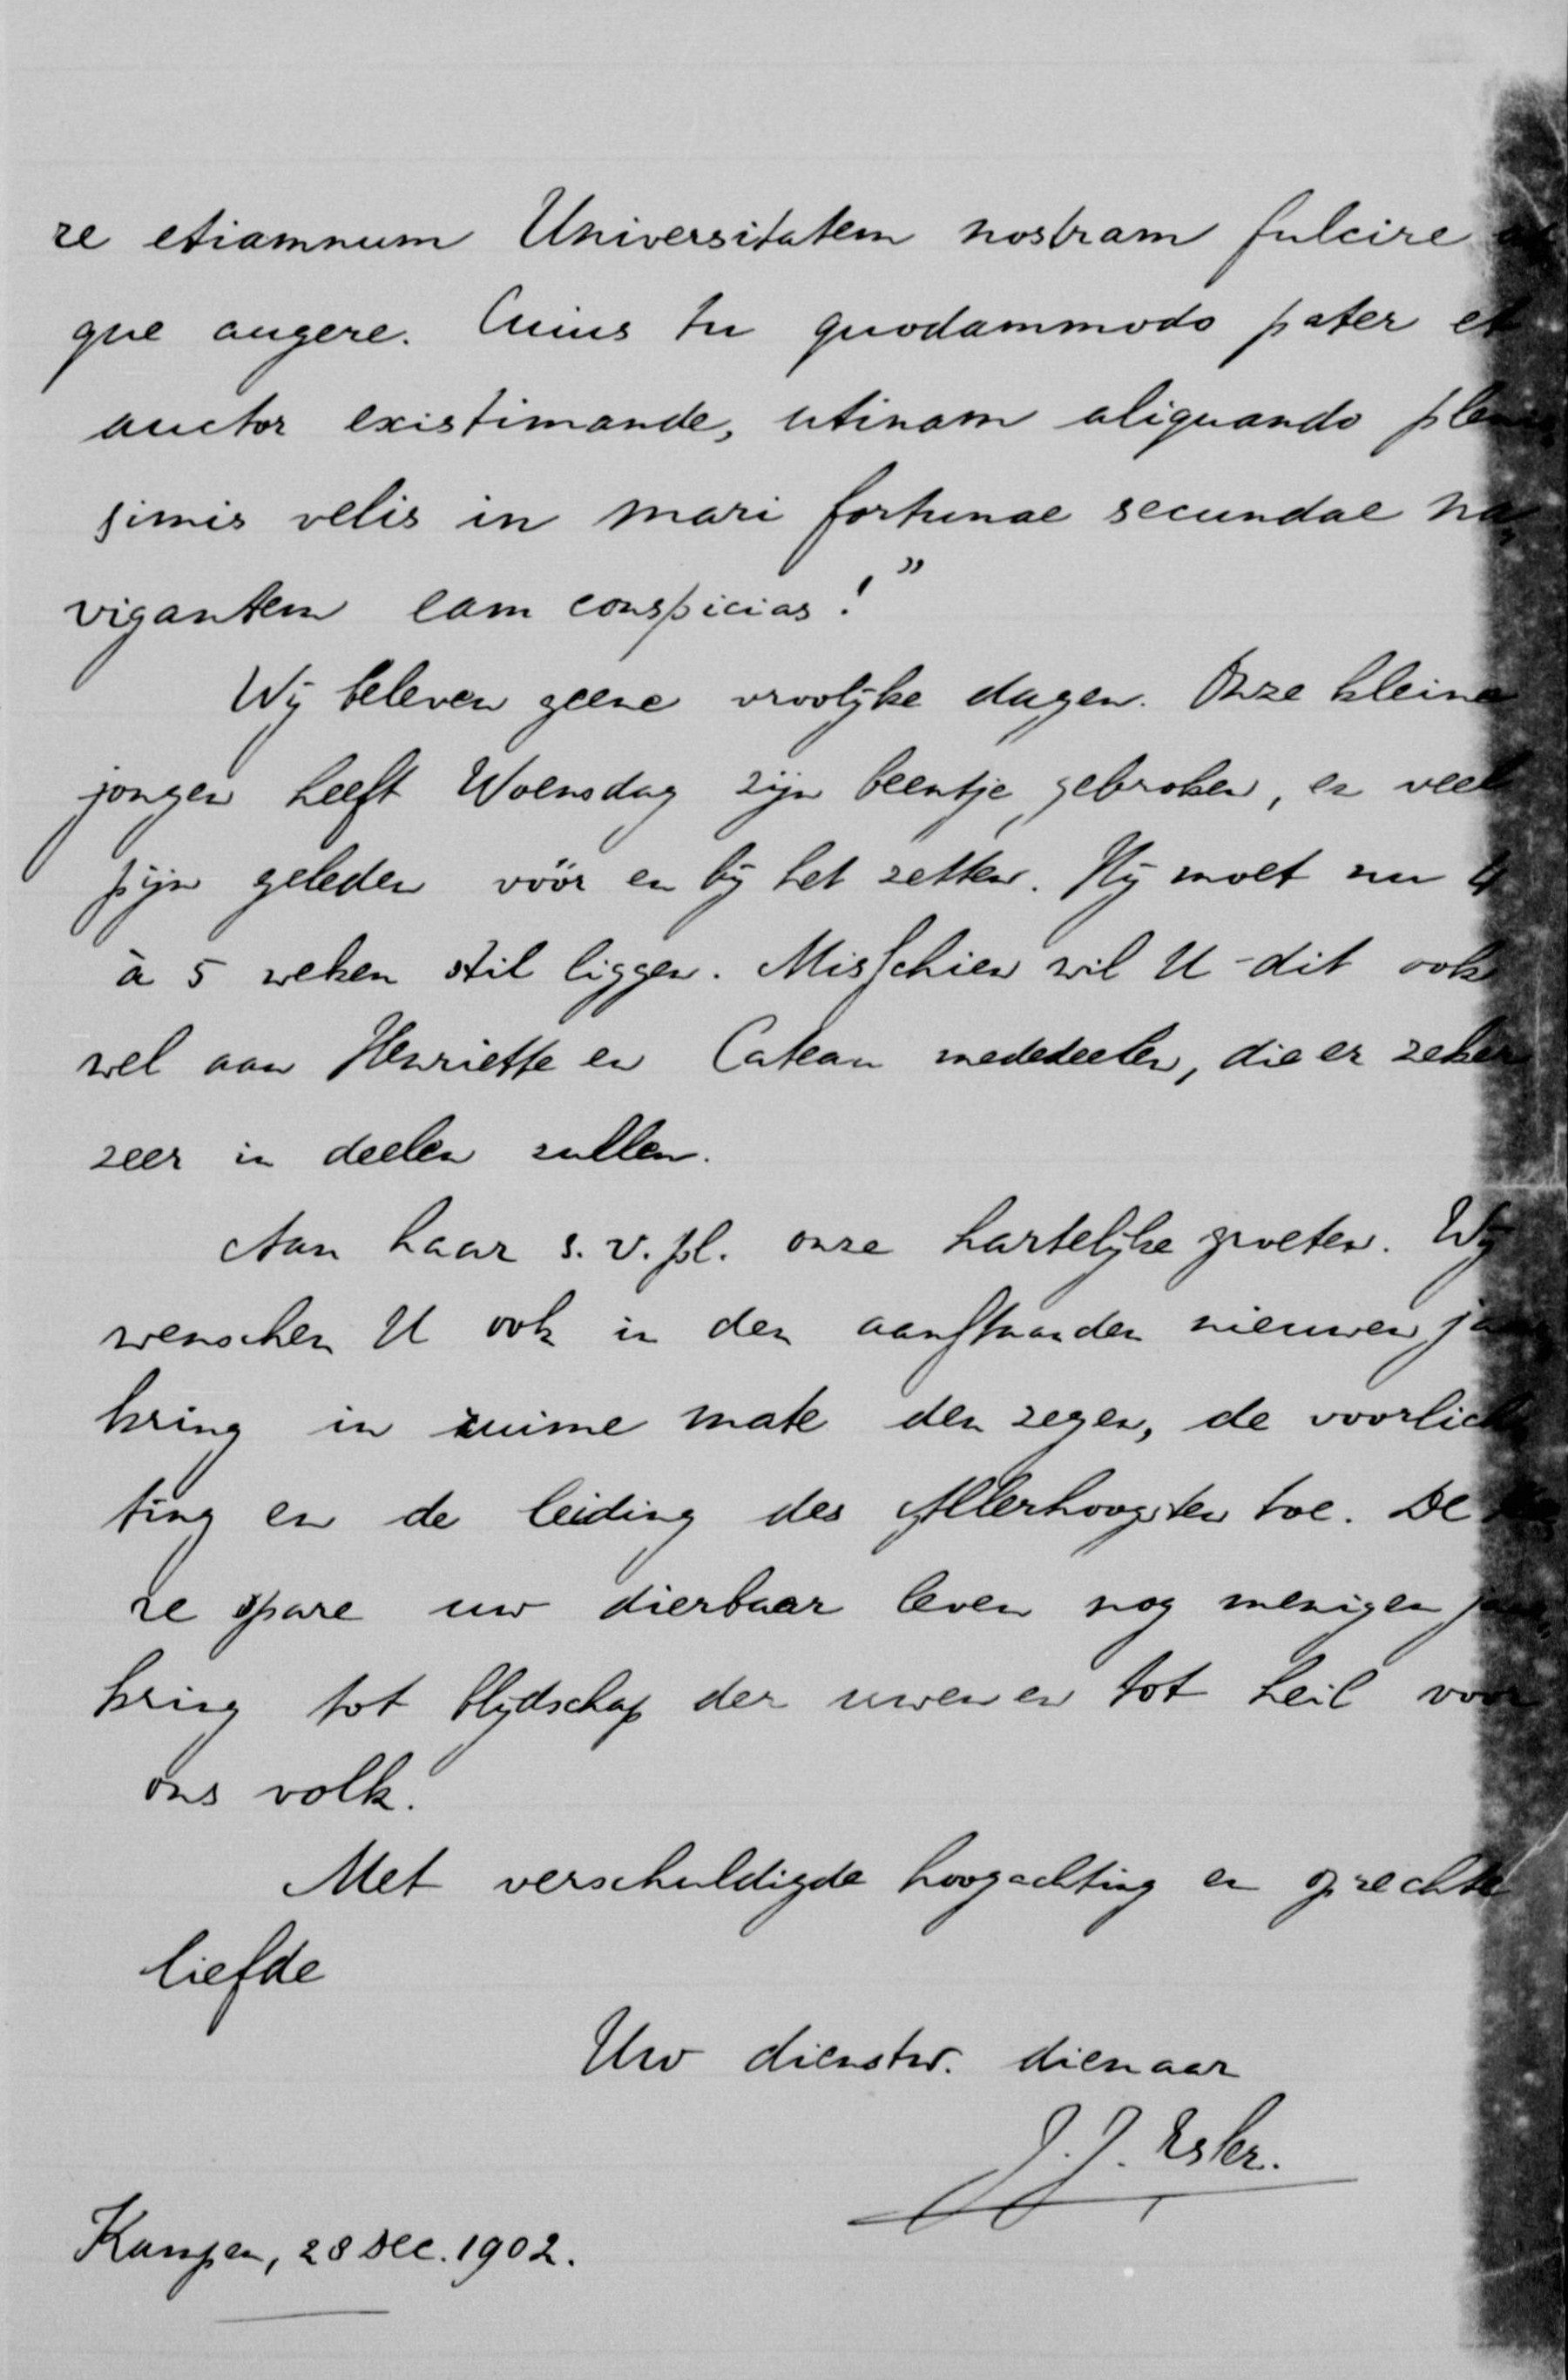 re etiamnum Universitatem nostram fulcire
que augere. Cuius tu quodammodo pater et
auctor existimande, utinam aliquando
simis velis in mari fortunae secundae na
vigantem eam conspicias!"
Wij beleven geene vroolijke dagen. Onze kleine
jongen heeft Woensdag zijn beentje gebroken, en veel
pijn geleden vóór en bij het zetten. Hij moet nu 4
à 5 weken stil liggen. Misschien wil U dit ook
wel aan Henriette en Cateau mededeelen, die er zeker
zeer in deelen zullen.
Aan haar s.v.pl. onze hartelijke groeten. Wij
wenschen U ook in den aanstaanden nieuwen
kring in ruime mate den zegen, de voorlich
ting en de leiding des Allerhoogsten toe. De
re spare uw dierbaar leven nog menigen
kring tot blijdschap der uwen en tot heil voor
ons volk.
Met verschuldigde hoogachting en oprechte
liefde
Uw dienstw. dienaar
J. J. Esser.
Kampen, 28 Dec. 1902.